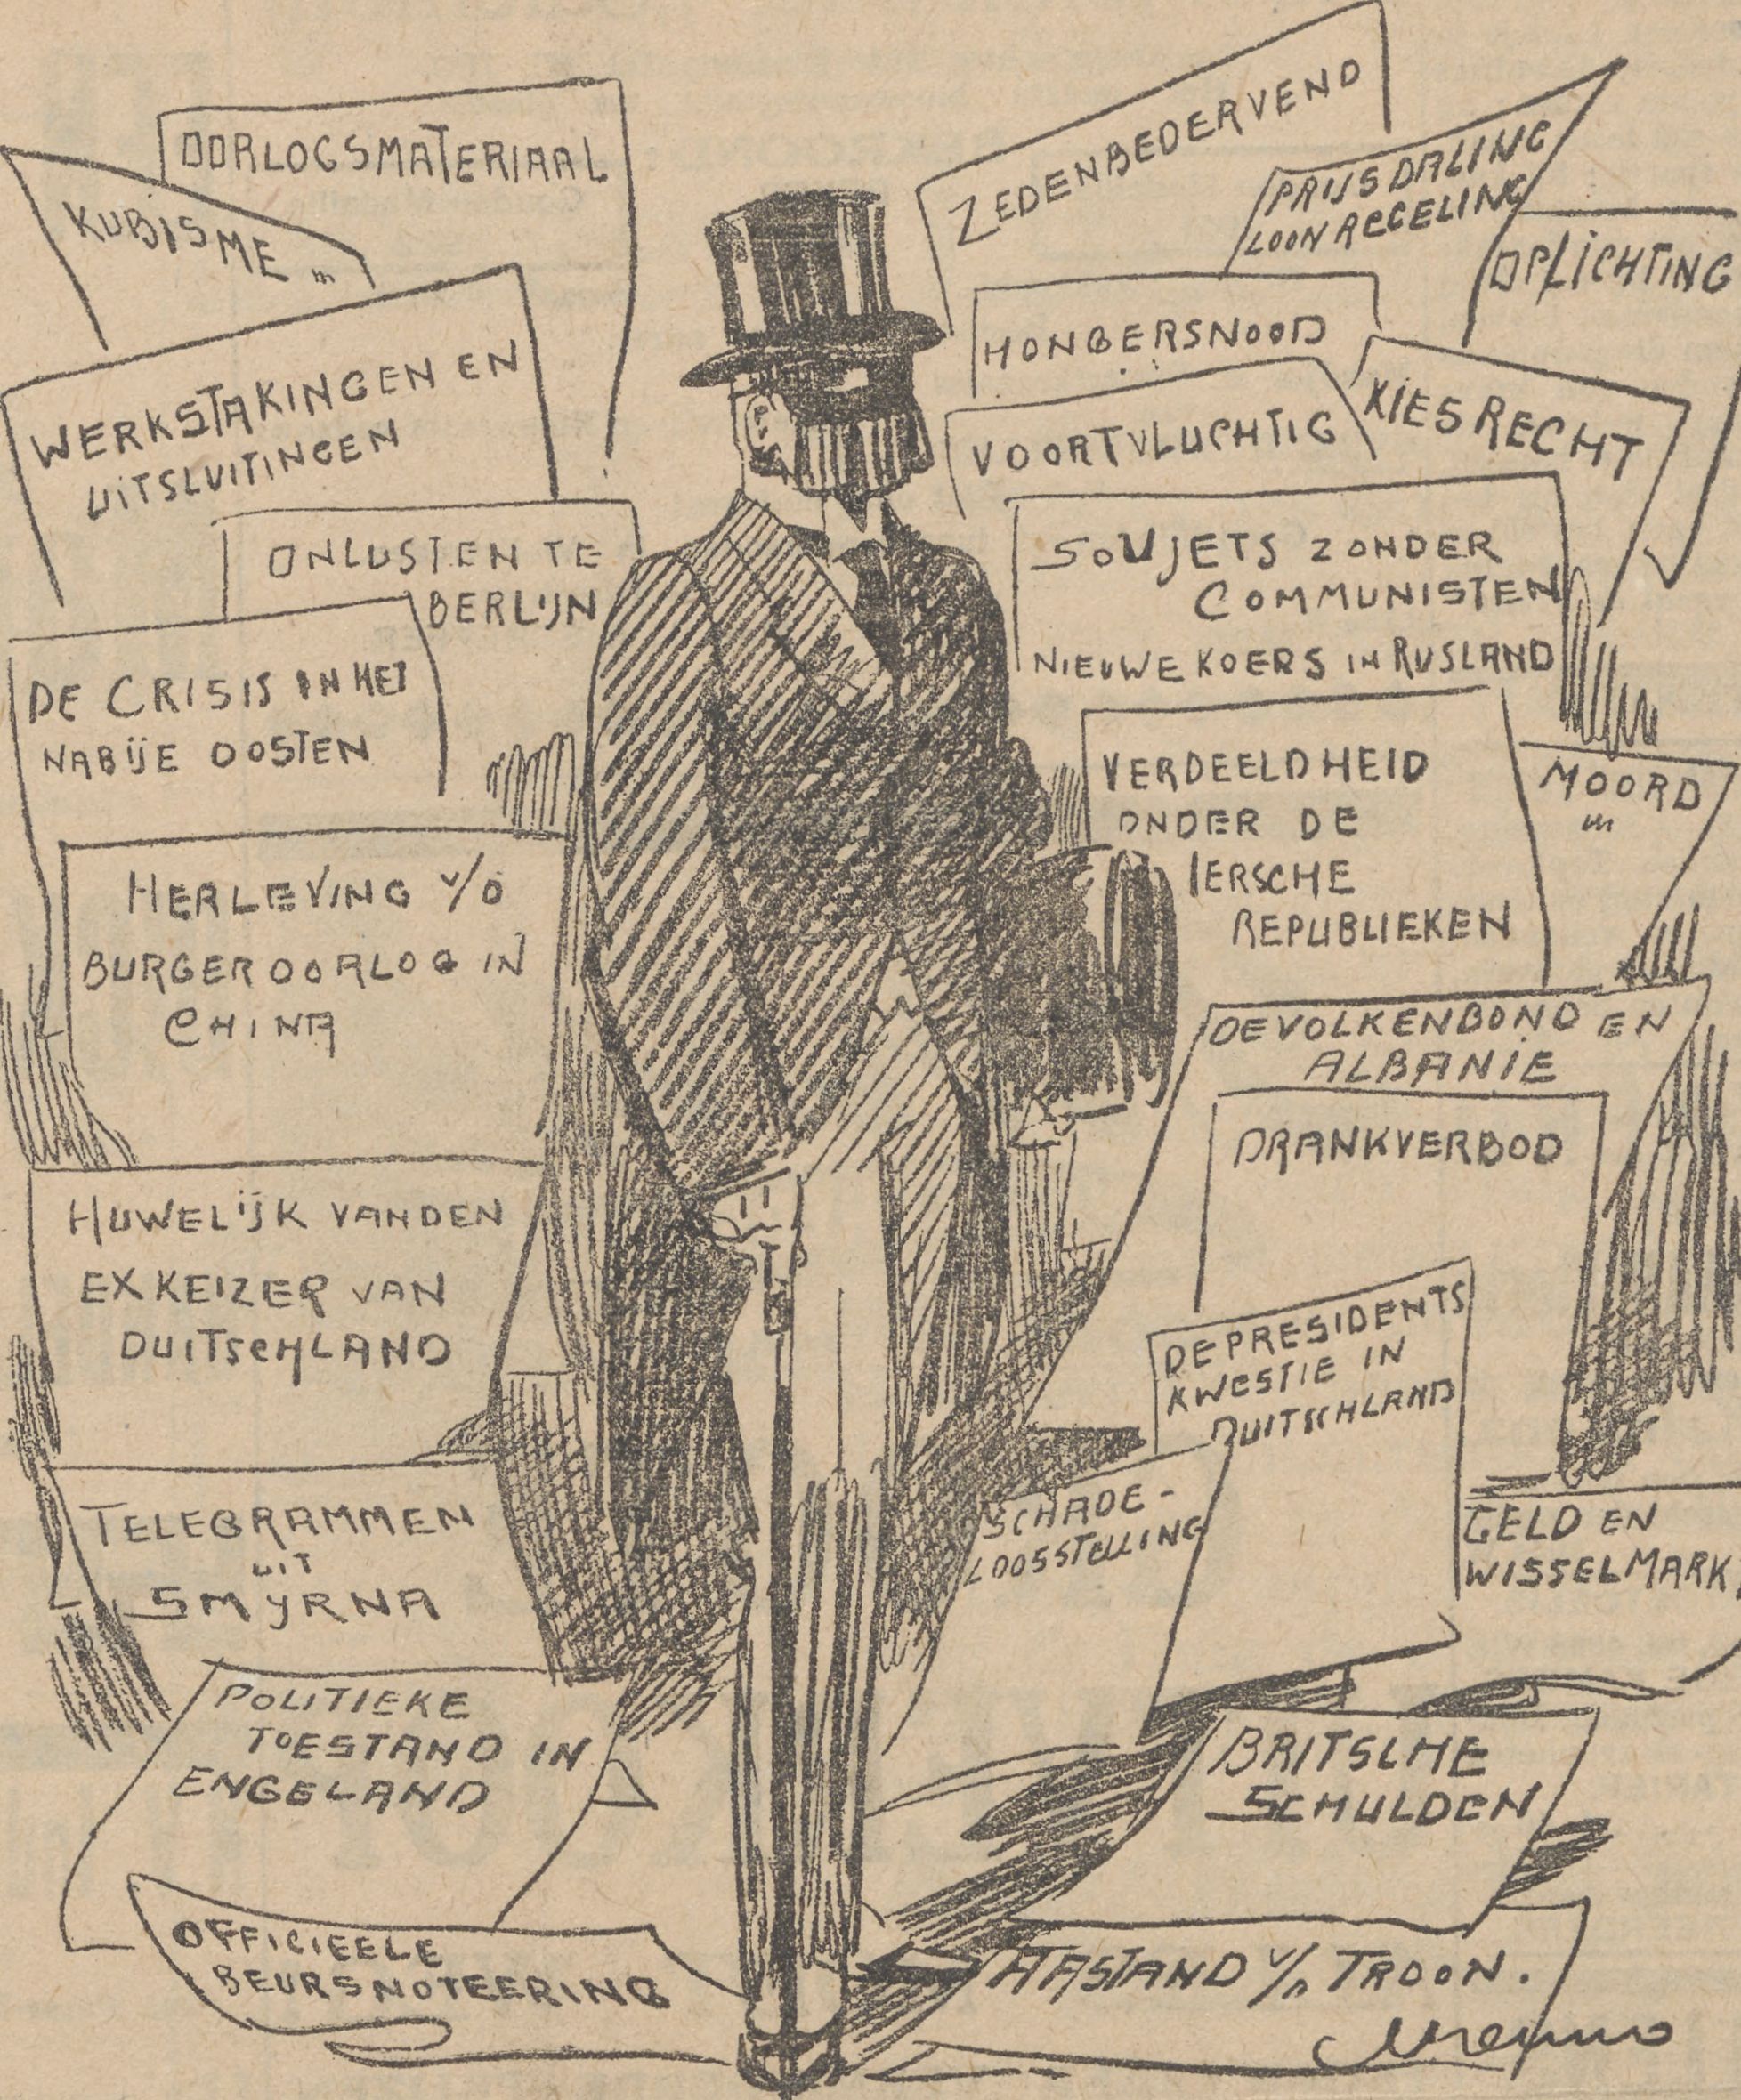 OORLOGSMATERIAAL
KUBISME
WERKSTAKINGEN EN
UITSLUITINGEN
ONLUSTEN TE
BERLIJN
DE CRISIS IN HET
NABIJE OOSTEN
HERLEVING V/D
BURGEROORLOG IN
CHINA
HUWELIJK VAN DEN
EX KEIZER VAN
DUITSCHLAND
TELEGRAMMEN
UIT
SMYRNA
POLITIEKE
TOESTAND IN
ENGELAND
OFFICIEELE
BEURSNOTEERING
ZEDENBEDERVEND
PRIJSDALING
LOONREGELING
OPLICHTING
HONGERSNOOD
KIESRECHT
VOORTVLUCHTIG
SOVJETS ZONDER
COMMUNISTEN
NIEUWE KOERS IN RUSLAND
VERDEELDHEID
ONDER DE
IERSCHE
REPUBLIEKEN
MOORD
DE VOLKENBOND EN
ALBANIE
DRANKVERBOD
DE PRESIDENTS
KWESTIE IN
DUITSCHLAND
SCHADE-
LOOSSTELLING
GELD EN
WISSELMARK.
BRITSCHE
SCHULDEN
AFSTAND V/D TROON.